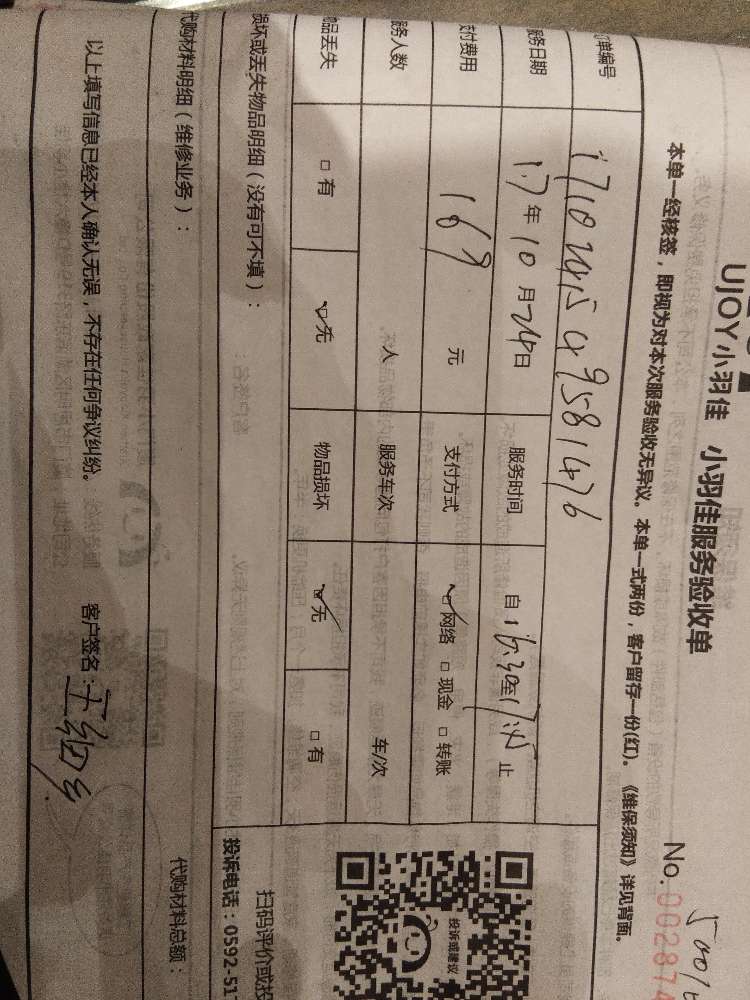 UJOY小羽佳 小羽佳服务验收单
No.002874
本单一经核签，即视为对本次服务验收无异议。本单一式两份，客户留存一份(红)。《维保须知》详见背面。
订单编号
服务日期 17年10月24日 服务时间 自 16:30至17:45止
支付费用 169 元 支付方式 ☑网络 □现金 □转账
服务人数 人 服务车次 车/次
物品丢失 □有 ☑无 物品损坏 ☑无 □有
损坏或丢失物品明细（没有可不填）：
投诉或建议
扫码评价或投
投诉电话：0592-51
代购材料明细（维修业务）： 代购材料总额：
以上填写信息已经本人确认无误，不存在任何争议纠纷。 客户签名：